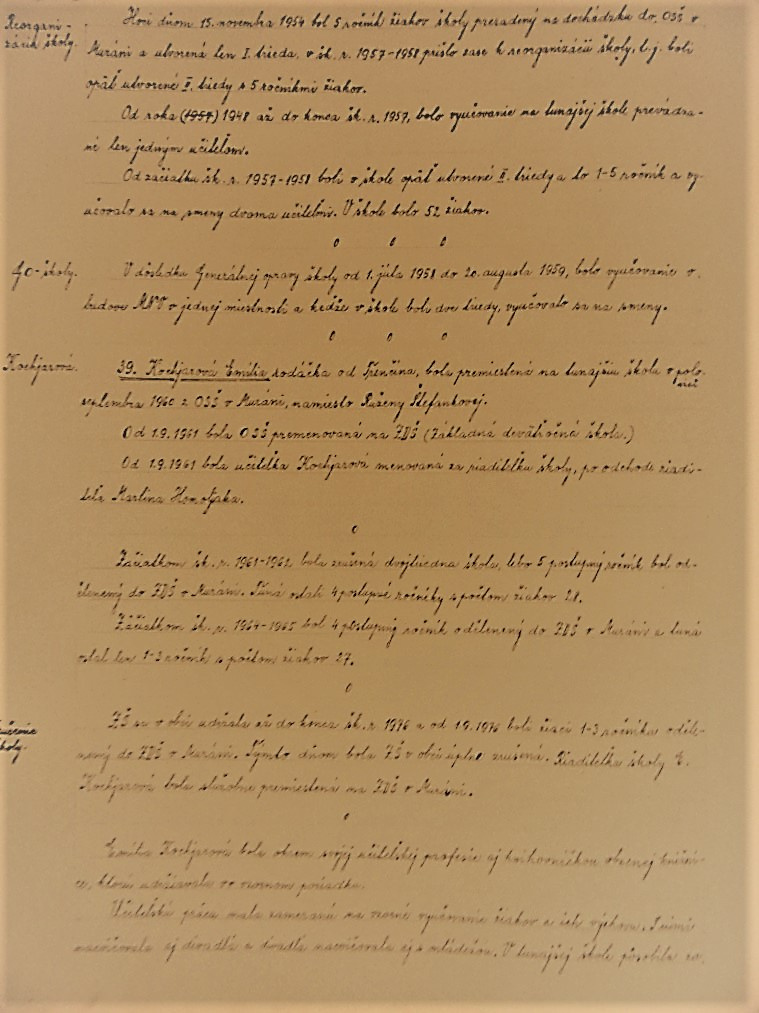 Reorgani-
zácia školy.
Hoci dňom 15. novembra 1954 bol 5 ročník žiakov školy preradený na dochádzku do OSŠ v
Muráni a utvorená len I. trieda, v šk. r. 1957-1958 prišlo zase k reorganizácii školy, t. j. boli
opäť utvorené II. triedy s 5 ročníkmi žiakov.
Od roku (1957) 1948 až do konca šk. r. 1957, bolo vyučovanie na tunajšej škole prevádza-
né len jedným učiteľom.
Od začiatku šk. r. 1957-1958 boli v škole opäť utvorené II. triedy a to 1-5 ročník a vy-
učovalo sa na smeny dvoma učiteľmi. V škole bolo 52 žiakov.
GO-školy.
V dôsledku Generálnej opravy školy od 1. júla 1958 do 20. augusta 1959, bolo vyučovanie v
budove MNV v jednej miestnosti a kedže v škole boli dve triedy, vyučovalo sa na smeny.
Kochjarová.
39. Kochjarová Emília rodáčka od Trenčína, bola premiestnená na tunajšiu školu v polo-
vici
septembra 1960 z OSŠ v Muráni, namiesto Ruženy Štefankovej.
Od 1.9.1961 bola OSŠ premenovaná na ZDŠ (Základná deväťročná škola.)
Od 1.9.1961 bola učiteľka Kochjarová menovaná za riaditeľku školy, po odchode riadi-
teľa Martina Homoľaka.
Začiatkom šk. r. 1961-1962 bola zrušená dvojtriedna škola, lebo 5 postupný ročník bol od-
členený do ZDŠ v Muráni. Tuná ostali 4 postupné ročníky s počtom žiakov 28.
Začiatkom šk. r. 1964-1965 bol 4 postupný ročník odčlenený do ZDŠ v Muráni a tuná
ostal len 1-3 ročník s počtom žiakov 27.
školy.
ZŠ sa v obci udržala až do konca šk. r. 1976 a od 1.9.1976 boli žiaci 1-3 ročníka odčle-
nený do ZDŠ v Muráni. Týmto dňom bola ZŠ v obci úplne zrušená. Riaditeľka školy E.
Kochjarová bola služobne premiestnená na ZDŠ v Muráni.
Emília Kochjarová bola okrem svojej učiteľskej profesie aj knihovníčkou obecnej knižni-
ce, ktorú udržiavala vo vzornom poriadku.
Učiteľskú prácu mala zameranú na vzorné vyučovanie žiakov a ich výchovu. S nimi
nacvičovala aj divadlá a divadlá nacvičovala aj s mládežou. V tunajšej škole pôsobila